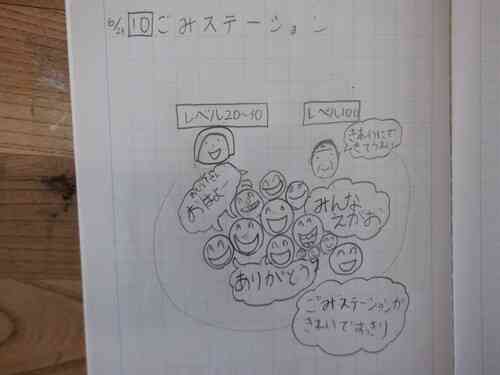 6/28 10 ごみステーション
レベル20~10
レベル100
きれいにで
きてうれしい
おはよー
みんな
えがお
ありがとう
ごみステーションが
きれいですっきり